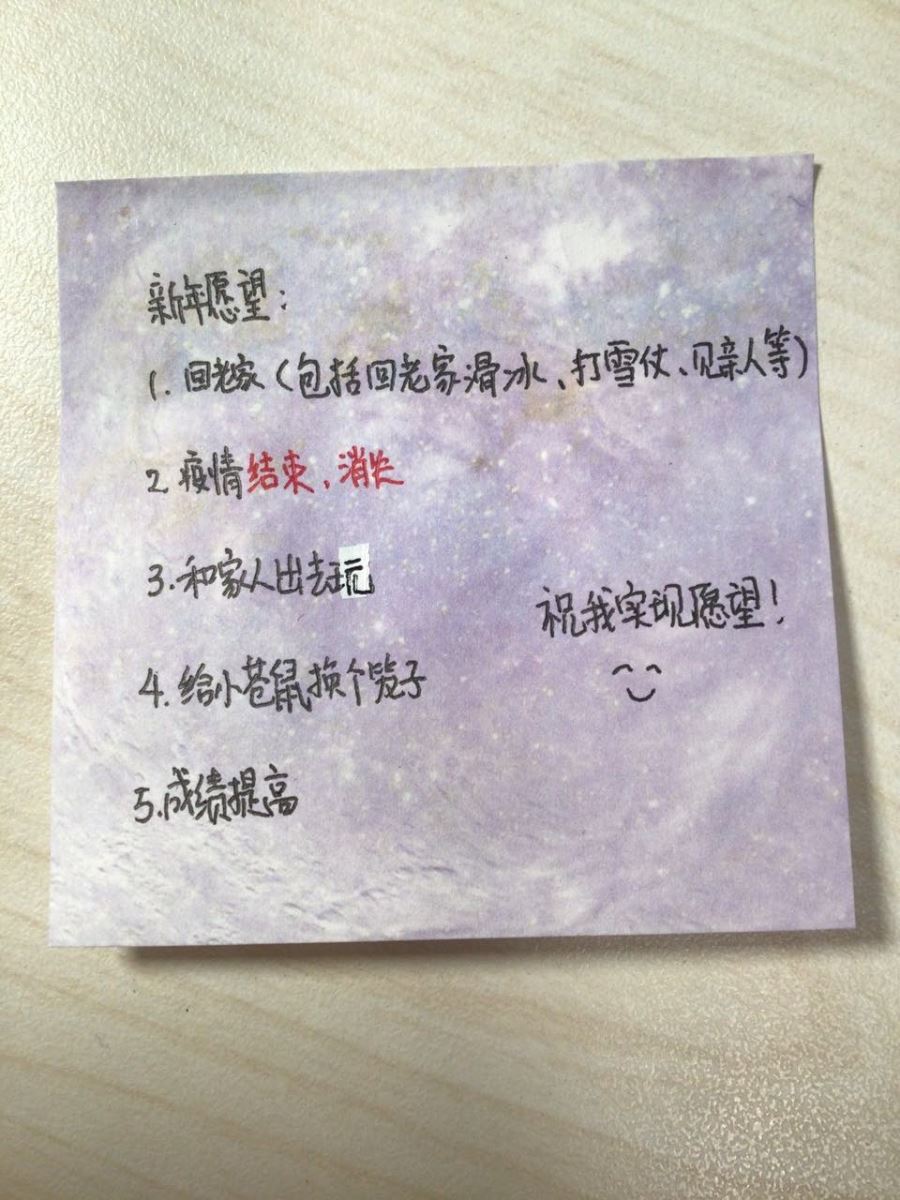 新年愿望：
1. 回老家（包括回老家滑冰、打雪仗、见亲人等）
2 疫情结束，消失
3.和家人出去玩
祝我实现愿望！
4.给小苍鼠换个笼子
5.成绩提高